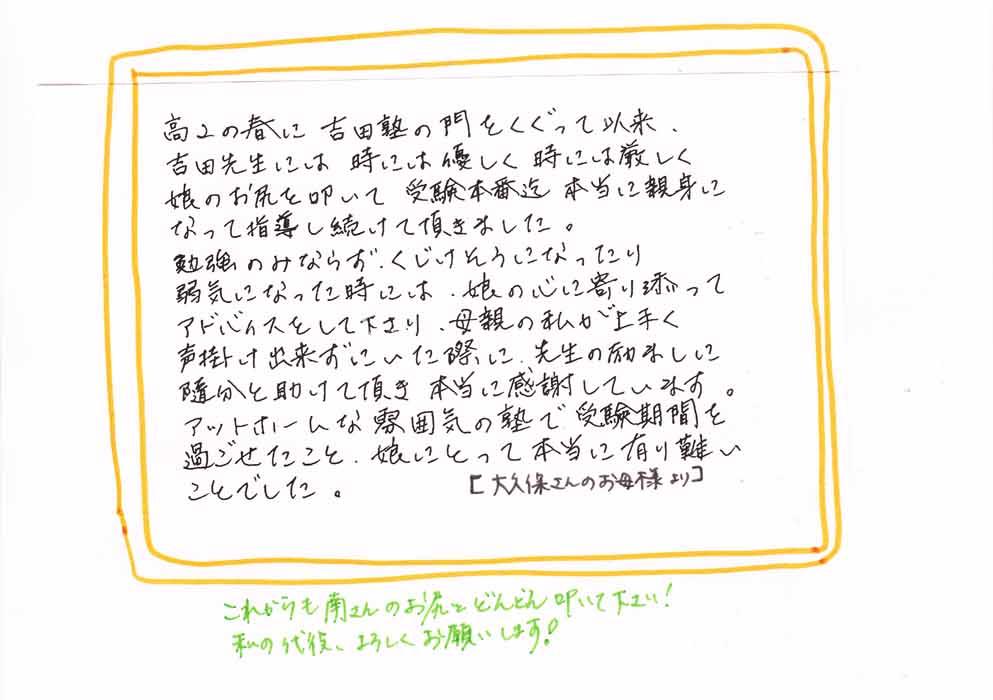 高2の春に 吉田塾の門をくぐって以来、
吉田先生には 時には優しく 時には厳しく
娘のお尻を叩いて 受験本番迄 本当に親身に
なって指導し続けて頂きました。
勉強のみならず、くじけそうになったり
弱気になった時には、娘の心に寄り添って
アドバイスをして下さり、母親の私が上手く
声掛け出来ずにいた際に、先生の励ましに
随分と助けて頂き 本当に感謝しています。
アットホームな雰囲気の塾で 受験期間を
過ごせたこと、娘にとって本当に有り難い
ことでした。
[大久保さんのお母様より]
これからも南さんのお尻をどんどん叩いて下さい!
私の代役、よろしくお願いします!